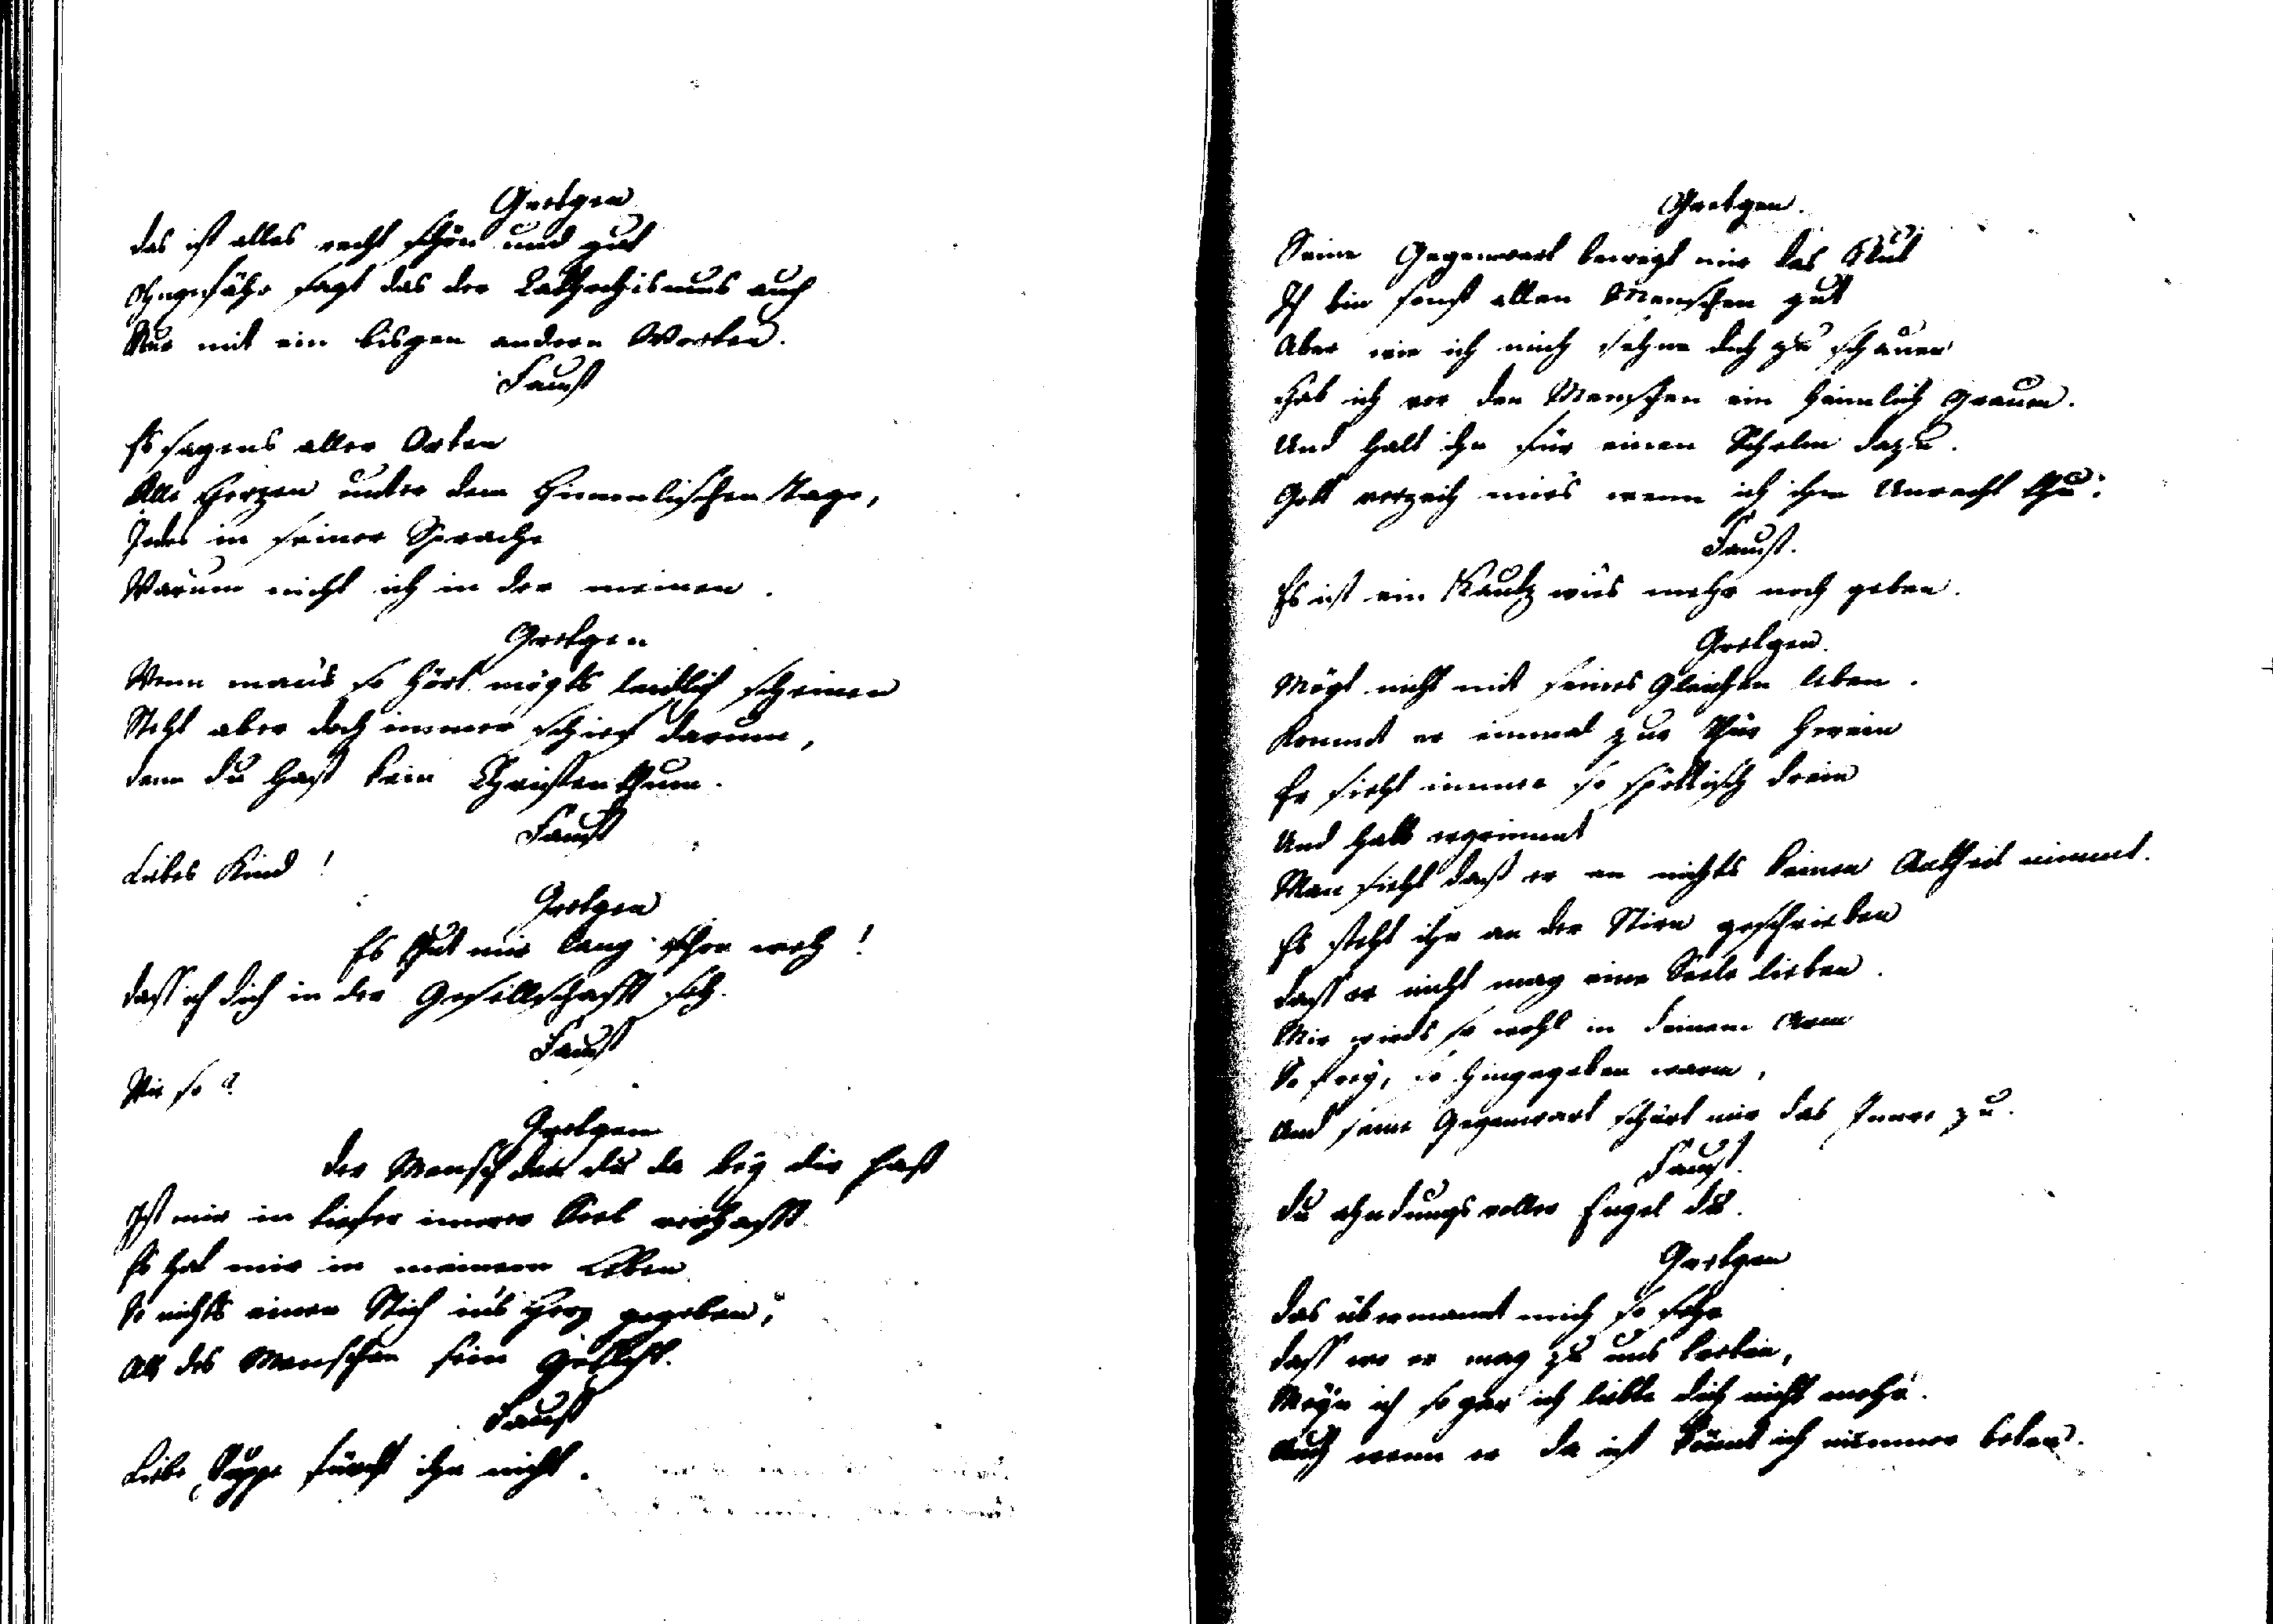 Gretgen
Das ist alles recht schön und gut
Ohngefähr sagt das der Cathechismus auch
Nur mit ein bisgen andern Worten.
Faust
Es sagens aller Orten
Alle Herzen unter dem Himmlischen Tage,
Jedes in seiner Sprache
Warum nicht ich in der meinen.
Gretgen
Wenn mans so hört mögts leidlich scheinen
Steht aber doch immer schief darum,
Denn du hast kein Christenthum.
Faust
Liebes Kind!
Gretgen
Es thut mir lang schon weh!
Dass ich dich in der Gesellschafft seh.
Faust
Wie so?
Gretgen
Der Mensch den du da bey dir hast
Ist mir in tiefer innrer Seel verhasst.
Es hat mir in meinem Leben
So nichts einen Stich ins Herz gegeben,
Als des Menschen sein Gesicht.
Faust
Liebe Puppe fürcht ihn nicht.
Gretgen.
Seine Gegenwart bewegt mir das Blut
Ich bin sonst allen Menschen gut
Aber wie ich mich sehne dich zu schauen
Hab ich vor den Menschen ein heimlich Grauen.
Und halt ihn für einen Schelm dazu.
Gott verzeih mirs wenn ich ihm Unrecht thu.
Faust.
Es ist ein Kautz wies mehr noch geben.
Gretgen.
Mögt nicht mit seines Gleichen leben.
Kommt er einmal zur Thür herein
Er sieht immer so spöttisch drein
Und halb ergrimmt
Man sieht dass er an nichts keinen Antheil nimmt.
Es steht ihm an der Stirn geschrieben
Dass er nicht mag eine Seele lieben.
Mir wirds so wohl in deinem Arm
So frey, so hingegeben warm,
Und seine Gegenwart schürt mir das Innre zu.
Faust.
Du ahndungsvoller Engel du.
Gretgen
Das übermannt mich so sehr
Dass wo er mag zu uns tretten,
Meyn ich so gar ich liebte dich nicht mehr.
Auch wenn er da ist könnt ich nimmer beten.